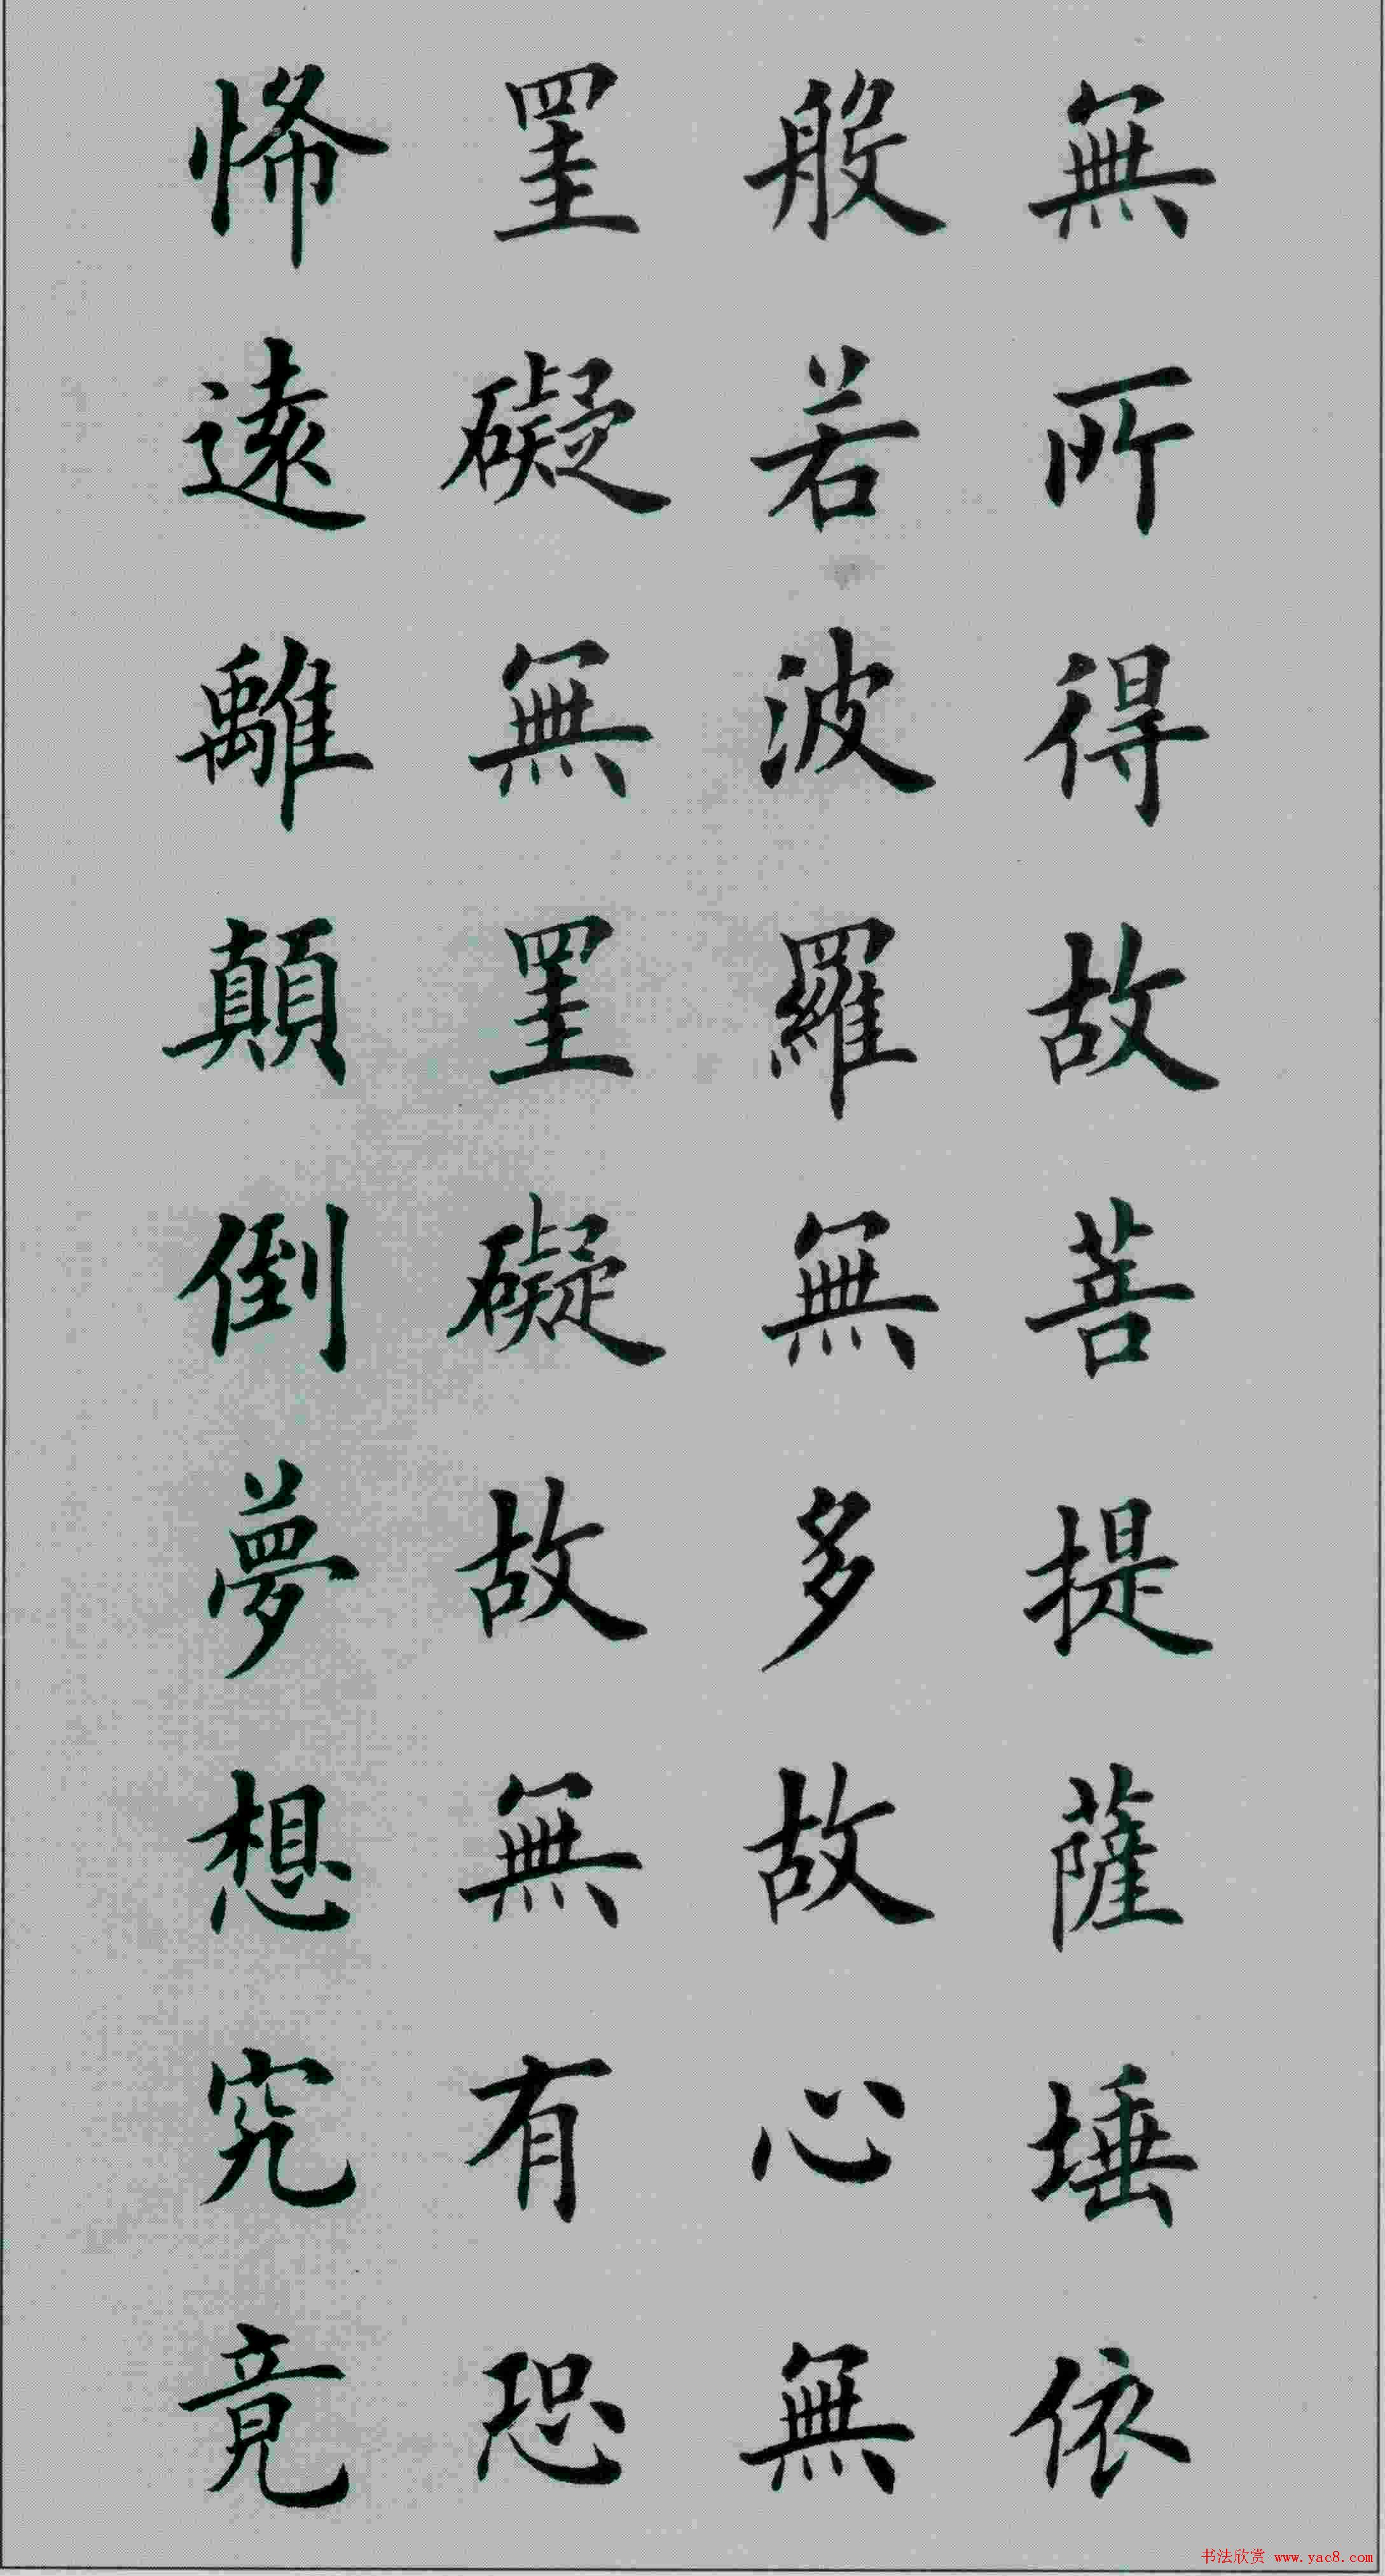 無所得故菩提薩埵依
般若波羅無多故心無
罣礙無罣礙故無有恐
悕遠離顛倒夢想究竟
书法欣赏 www.yac8.com